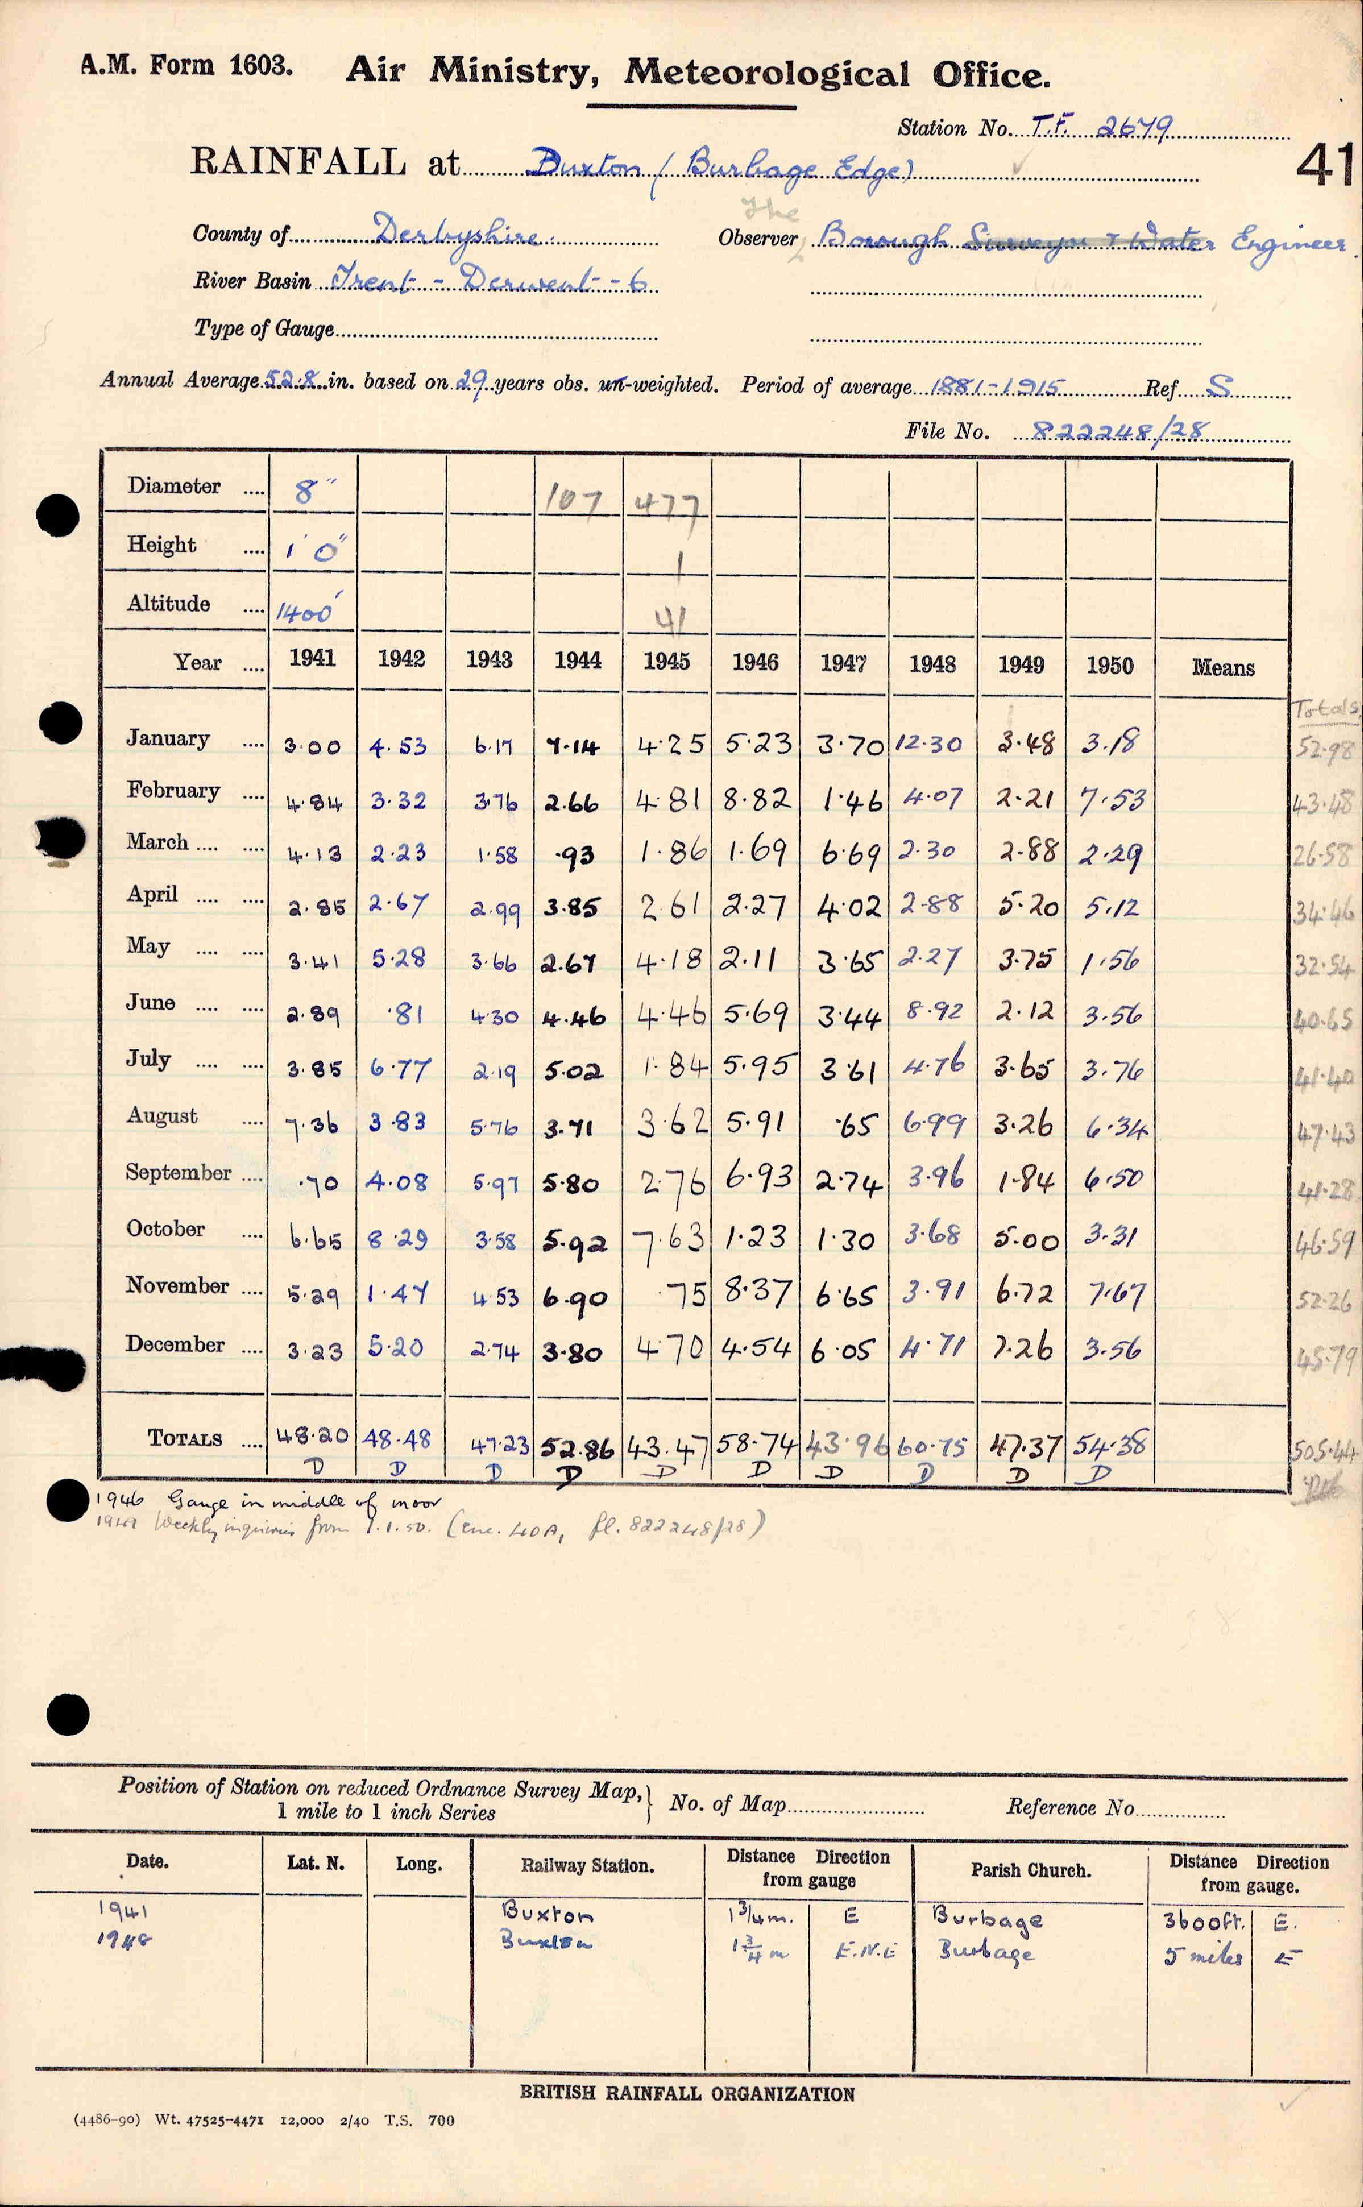 A.M. Form 1603. Air Ministry, Meteorological Office.
Station No. T.F. 2679
RAINFALL at Buxton (Burbage Edge) 41
The
County of Derbyshire. Observer Borough Surveyor & Water Engineer.
River Basin Trent - Derwent - 6
Type of Gauge
Annual Average 52.8 in. based on 29 years obs. un-weighted. Period of average 1881-1915 Ref S
File No. 822248/28
Diameter 8" 107 477
Height 1' 0" 1
Altitude 1400' 41
Year 1941 1942 1943 1944 1945 1946 1947 1948 1949 1950 Means
Totals
January 3.00 4.53 6.17 7.14 4.25 5.23 3.70 12.30 3.48 3.18 52.98
February 4.84 3.32 3.76 2.66 4.81 8.82 1.46 4.07 2.21 7.53 43.48
March 4.13 2.23 1.58 .93 1.86 1.69 6.69 2.30 2.88 2.29 26.58
April 2.85 2.67 2.99 3.85 2.61 2.27 4.02 2.88 5.20 5.12 34.46
May 3.41 5.28 3.66 2.67 4.18 2.11 3.65 2.27 3.75 1.56 32.54
June 2.89 .81 4.30 4.46 4.46 5.69 3.44 8.92 2.12 3.56 40.65
July 3.85 6.77 2.19 5.02 1.84 5.95 3.61 4.76 3.65 3.76 41.40
August 7.36 3.83 5.76 3.71 3.62 5.91 .65 6.99 3.26 6.34 47.43
September .70 4.08 5.97 5.80 2.76 6.93 2.74 3.96 1.84 6.50 41.28
October 6.65 8.29 3.58 5.92 7.63 1.23 1.30 3.68 5.00 3.31 46.59
November 5.29 1.47 4.53 6.90 .75 8.37 6.65 3.91 6.72 7.67 52.26
December 3.23 5.20 2.74 3.80 4.70 4.54 6.05 4.71 7.26 3.56 45.79
TOTALS 48.20 48.48 47.23 52.86 43.47 58.74 43.96 60.75 47.37 54.38 505.44
D D D D D D D D D D
1946 Gauge in middle of moor
1949 Weekly inquiries from 1.1.50. (enc. 40A, fl. 822248/28)
Position of Station on reduced Ordnance Survey Map, 1 mile to 1 inch Series } No. of Map Reference No
Date. Lat. N. Long. Railway Station. Distance Direction from gauge Parish Church. Distance Direction from gauge.
1941 Buxton 1 3/4 m. E Burbage 3600ft. E.
1948 Buxton 1 3/4 m E.N.E Burbage 5 miles E
BRITISH RAINFALL ORGANIZATION
(4486-90) Wt. 47525-4471 12,000 2/40 T.S. 700